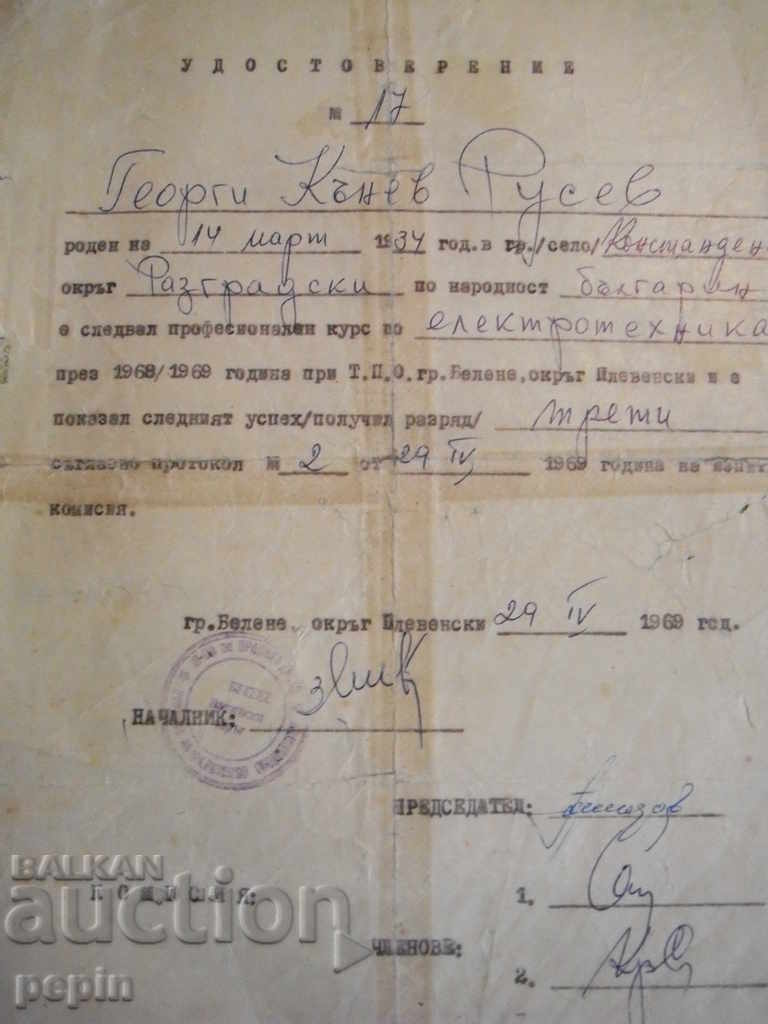 УДОСТОВЕРЕНИЕ
№ 17
Георги Кънев Русев
роден на 14 март 1934 год. в гр./село/ Констанден
окръг Разградски по народност българин
е следвал професионален курс по електротехника
през 1968/1969 година при Т.П.О. гр. Белене, окръг Плевенски и е
показал следният успех/получил разряд/ трети
съгласно протокол № 2 от 29 IV, 1969 година на изпит
комисия.
гр. Белене, окръг Плевенски 29 IV 1969 год.
НАЧАЛНИК:
ПРЕДСЕДАТЕЛ:
КОМИСИЯ:
1.
ЧЛЕНОВЕ:
2.
BALKAN
auction
pepin